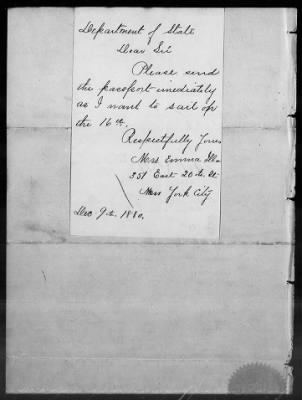 Department of State
Dear Sir
Please send
the passport imediately
as I want to sail on
the 16th.
Respectfully Yours
Mrs Emma
351 East 20th St
New York City
Dec 9th 1880.